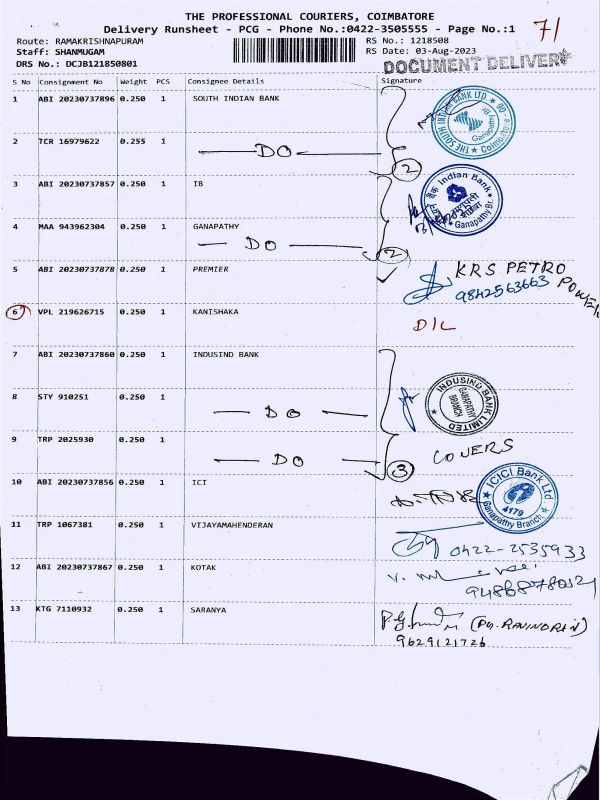 THE PROFESSIONAL COURIERS, COIMBATORE
Delivery Runsheet - PCG - Phone No.:0422-3505555 - Page No.:1
71
Route: RAMAKRISHNAPURAM
RS No.: 1218508
Staff: SHANMUGAM
RS Date: 03-Aug-2023
DRS No.: DCJB121850801
DOCUMENT DELIVERY
S No Consignment No Weight PCS Consignee Details Signature
1 ABI 20230737896 0.250 1 SOUTH INDIAN BANK
THE SOUTH INDIAN BANK LTD. Ganapathy Br. Coimbatore
2 TCR 16979622 0.255 1 DO
2
3 ABI 20230737857 0.250 1 IB
Indian Bank Ganapathy Br.
4 MAA 943962304 0.250 1 GANAPATHY
DO
2
5 ABI 20230737878 0.250 1 PREMIER
KRS PETRO POWER
9842563663
6 VPL 219626715 0.250 1 KANISHAKA
D/L
7 ABI 20230737860 0.250 1 INDUSIND BANK
INDUSIND BANK LIMITED GANAPATHY BRANCH
8 STY 910251 0.250 1 DO
9 TRP 2025930 0.250 1 DO
3
COVERS
10 ABI 20230737856 0.250 1 ICI
ICICI Bank Ltd 4179 Ganapathy Branch
11 TRP 1067381 0.250 1 VIJAYAMAHENDERAN
0422-2535933
12 ABI 20230737867 0.250 1 KOTAK
13 KTG 7110932 0.250 1 SARANYA
(PG. RAVINDRAN)
9629121726